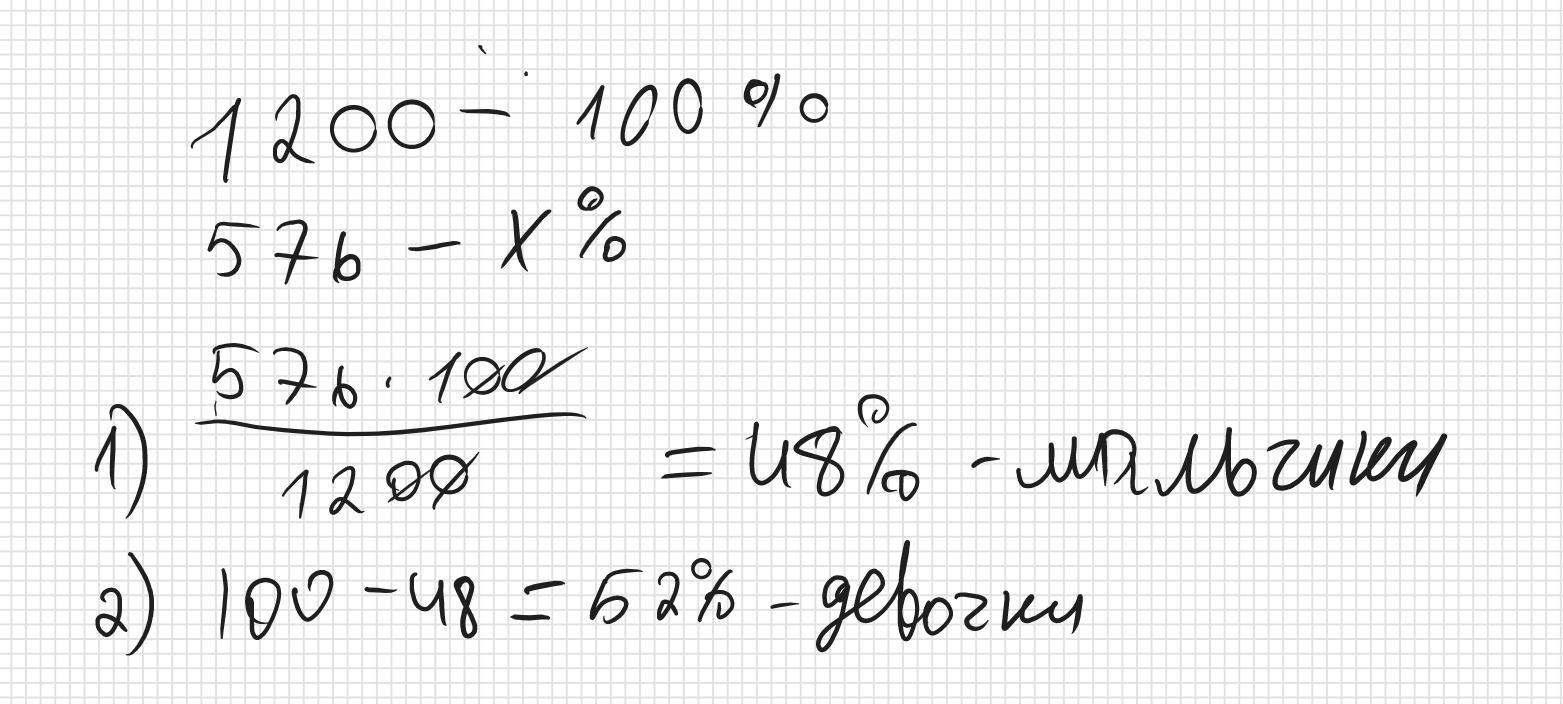 1200 - 100%
576 - X%
1) 576 · 100 / 1200 = 48% - мальчики
2) 100 - 48 = 52% - девочки